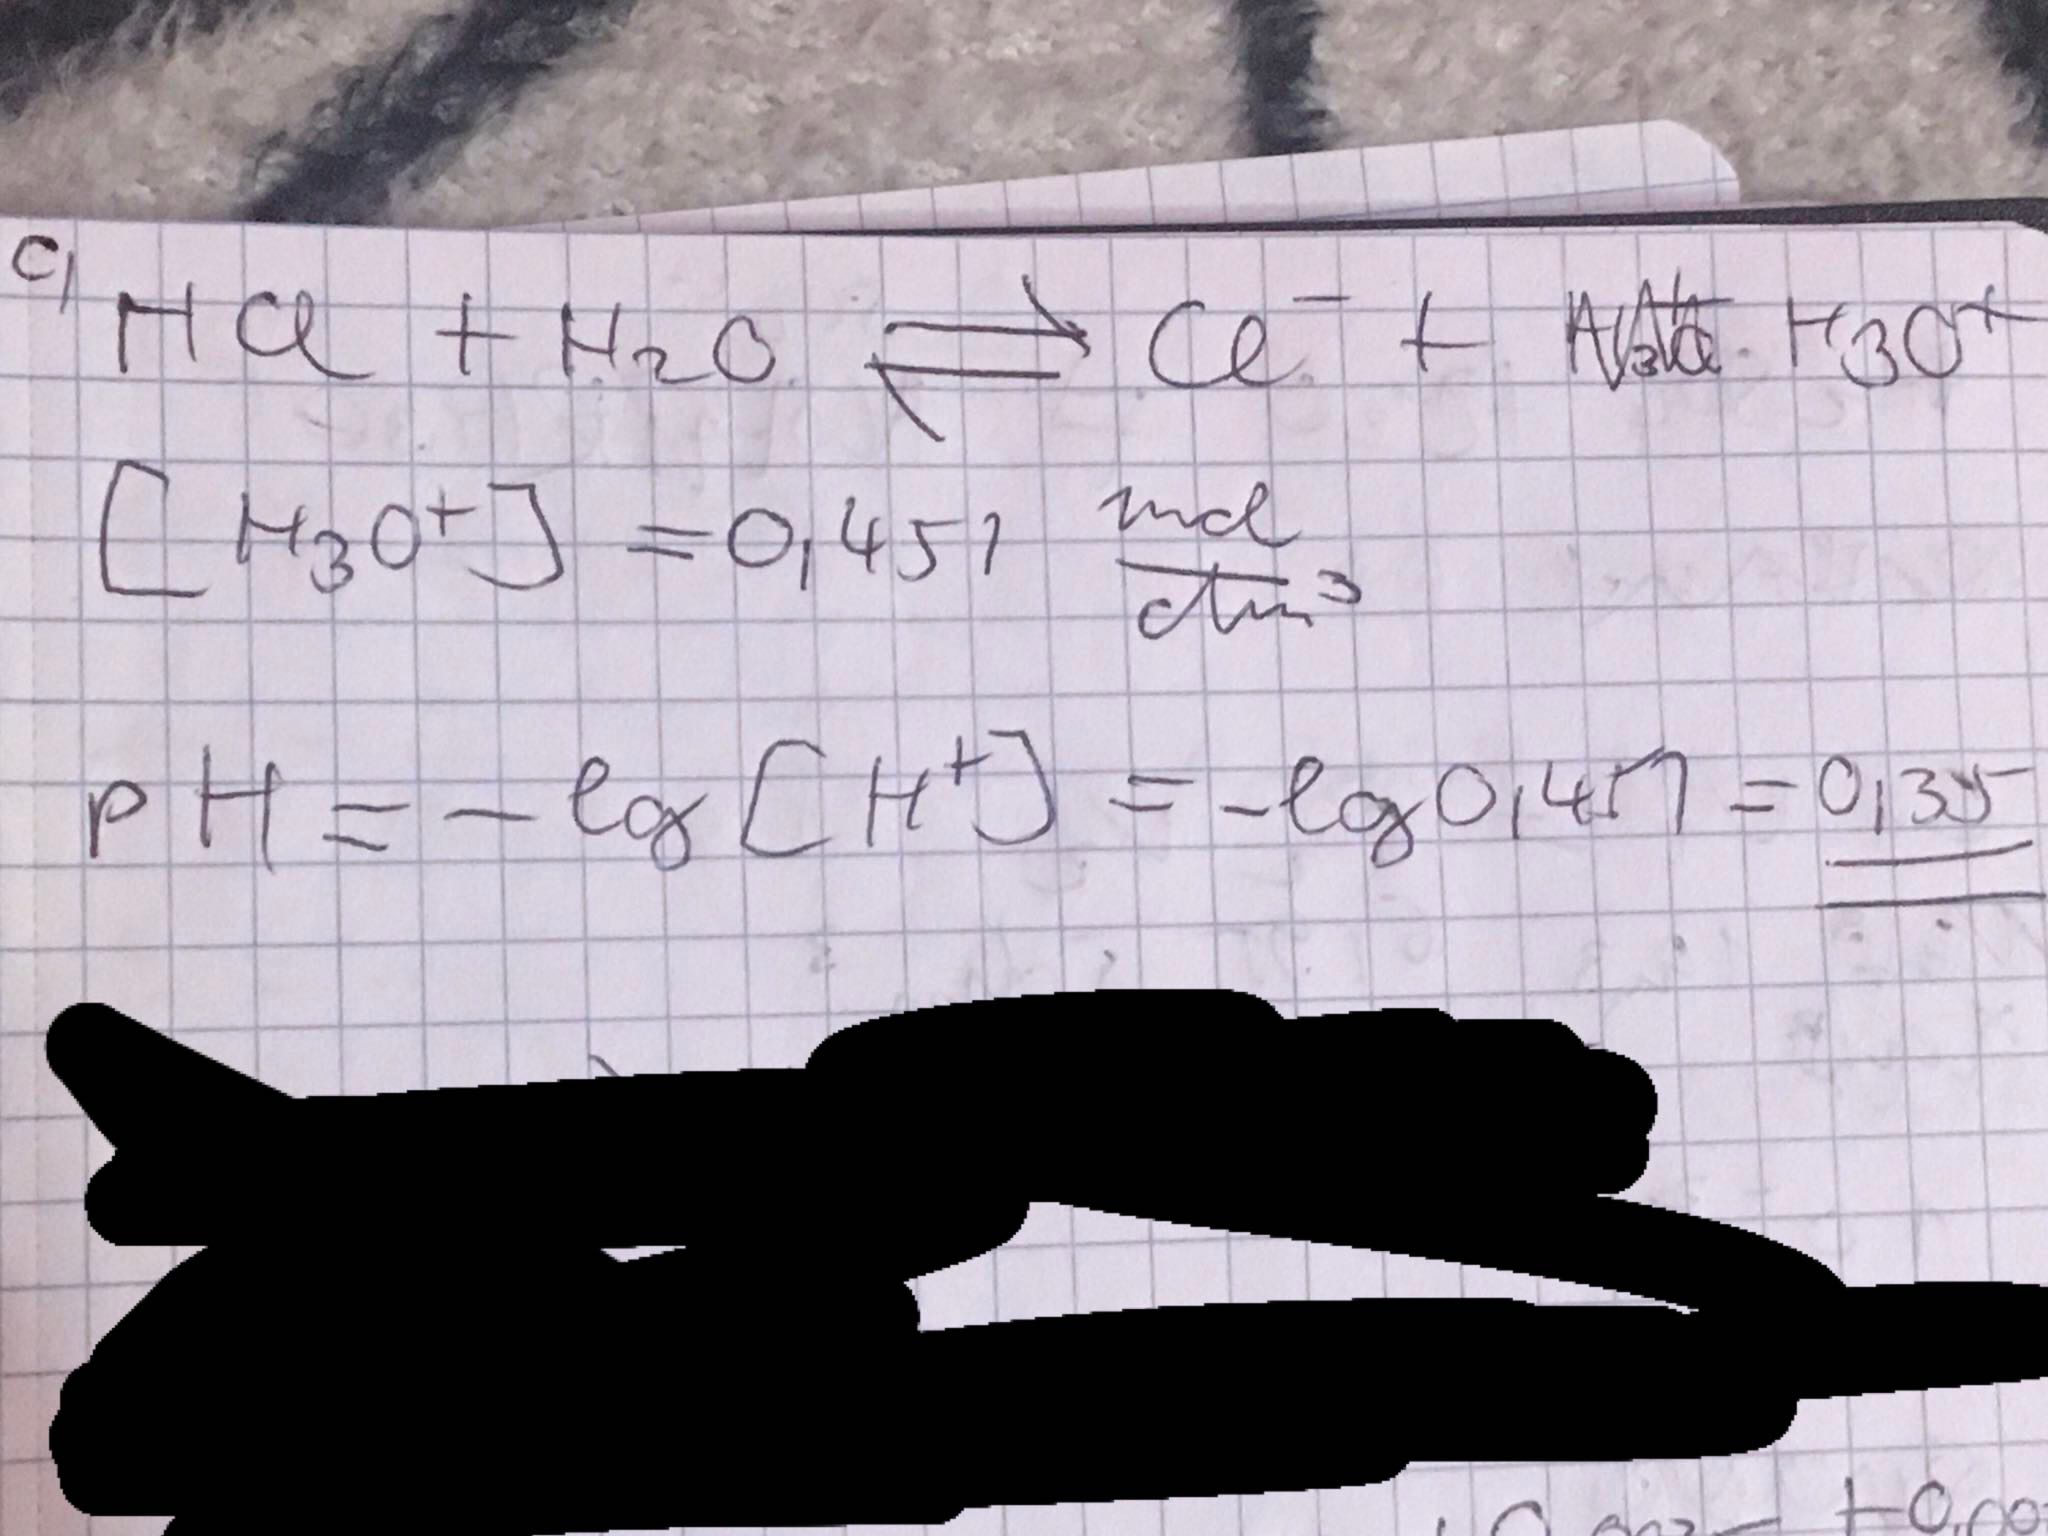 c)
HCl + H2O ⇌ Cl⁻ + H3O⁺
[H3O⁺] = 0,451 mol/dm³
pH = -log [H⁺] = -log 0,451 = 0,35